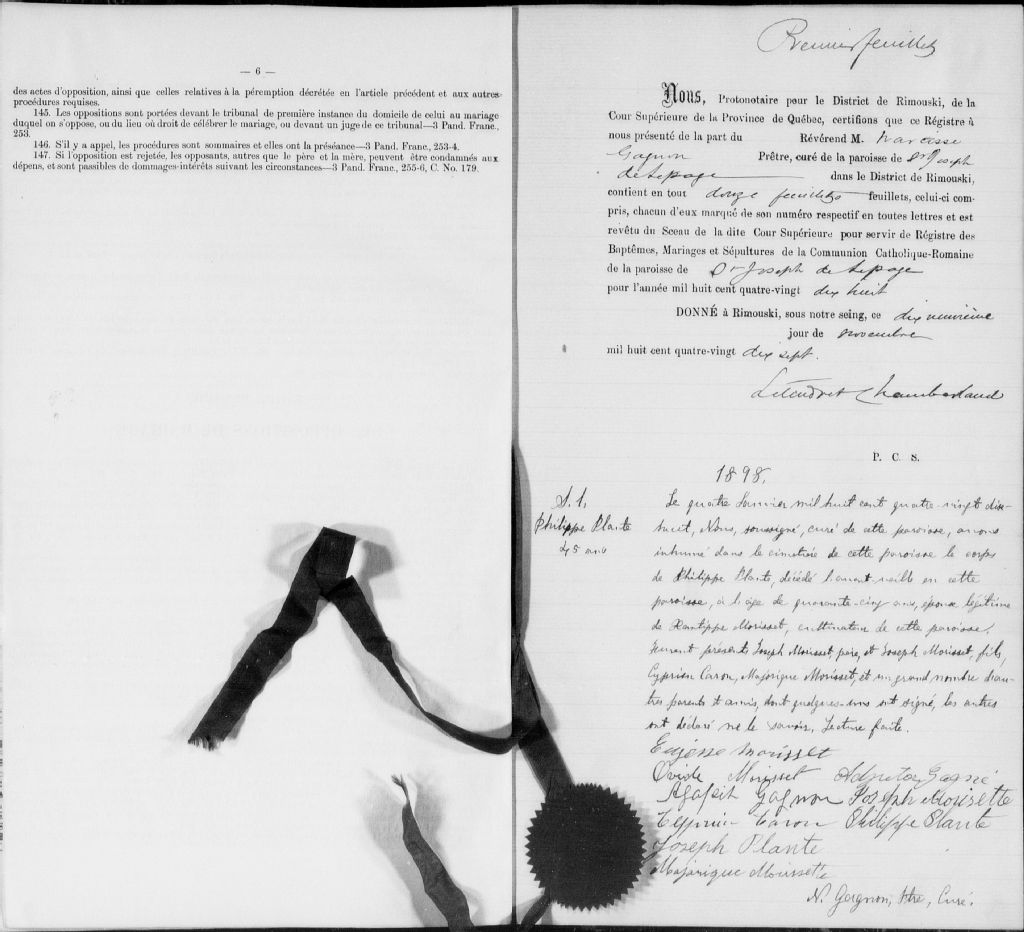 — 6 —
des actes d'opposition, ainsi que celles relatives à la péremption décrétée en l'article précédent et aux autres
procédures requises.
145. Les oppositions sont portées devant le tribunal de première instance du domicile de celui au mariage
duquel on s'oppose, ou du lieu où droit de célébrer le mariage, ou devant un juge de ce tribunal—3 Pand. Franc.,
253.
146. S'il y a appel, les procédures sont sommaires et elles ont la préséance—3 Pand. Franc., 253-4.
147. Si l'opposition est rejetée, les opposants, autres que le père et la mère, peuvent être condamnés aux
dépens, et sont passibles de dommages-intérêts suivant les circonstances—3 Pand. Franc., 255-6, C. No. 179.
Premier feuillet
Nous, Protonotaire pour le District de Rimouski, de la
Cour Supérieure de la Province de Québec, certifions que ce Régistre à
nous présenté de la part du Révérend M. Narcisse
Gagnon Prêtre, curé de la paroisse de St Joseph
de Lepage dans le District de Rimouski,
contient en tout douze feuillets feuillets, celui-ci com-
pris, chacun d'eux marqué de son numéro respectif en toutes lettres et est
revêtu du Sceau de la dite Cour Supérieure pour servir de Régistre des
Baptêmes, Mariages et Sépultures de la Communion Catholique-Romaine
de la paroisse de St Joseph de Lepage
pour l'année mil huit cent quatre-vingt dix huit
DONNÉ à Rimouski, sous notre seing, ce dix neuvième
jour de novembre
mil huit cent quatre-vingt dix sept.
Letendre & Chamberland
P. C. S.
1898.
S. 1.
Philippe Plante
45 ans
Le quatre Janvier mil huit cent quatre-vingt dix-
huit, Nous, soussigné, curé de cette paroisse, avons
inhumé dans le cimetière de cette paroisse le corps
de Philippe Plante, décédé l'avant-veille en cette
paroisse, à l'âge de quarante-cinq ans, époux légitime
de Xantippe Morisset, cultivateur de cette paroisse.
Furent présents Joseph Morisset, père, et Joseph Morisset, fils,
Cyprien Caron, Majorique Morisset, et un grand nombre d'au-
tres parents et amis, dont quelques-uns ont signé, les autres
ont déclaré ne le savoir. Lecture faite.
Eugène Morisset
Ovide Morisset Adjutor Gagné
Agapit Gagnon Joseph Morisette
Cyprien Caron Philippe Plante
Joseph Plante
Majorique Morissette
N. Gagnon, Ptre, Curé.